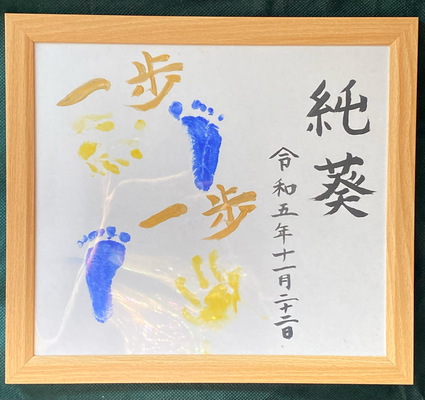 純葵
令和五年十一月二十二日
一歩
一歩